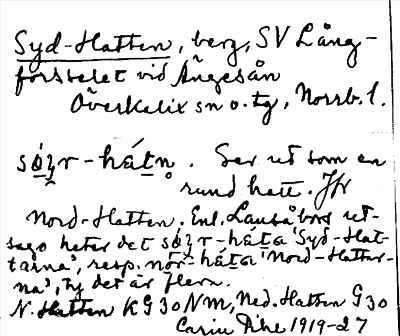 Syd-Hatten, berg, SV Lång-
forsselet vid Ängesån
Överkalix sn o. tg, Norrb. l.
sǿʒr-hátn̥. Ser ut som en
rund hatt. Jfr
Nord-Hatten. Enl. Lanså bor ut-
sago heter det sǿʒr-háta 'Syd-Hat-
tarna', resp. nǫr-háta 'Nord-Hattar-
na', ty det är flera.
N. Hatten KG 30 NM, Ned. Hatten G 30
Carin Pihl 1919-27